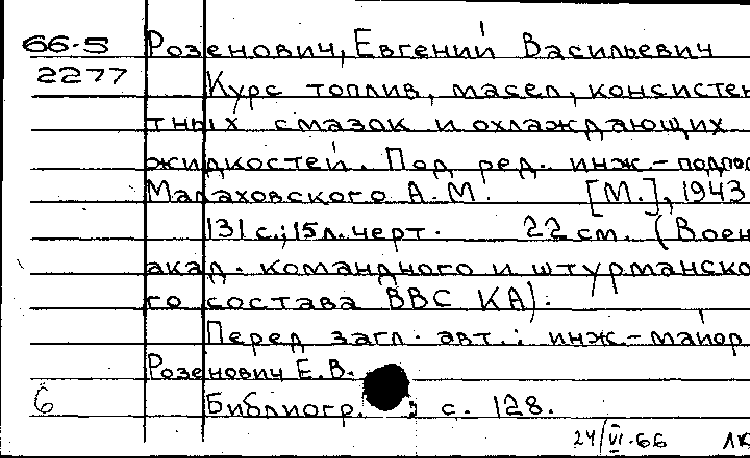 66-5 Розенович, Евгений Васильевич
2277 Курс топлив, масел, консистен
тных смазок и охлаждающих
жидкостей. Под ред. инж-подпол
Малаховского А.М. [М.], 1943
131 с.; 15 л. черт. 22 см. (Воен
акад. командного и штурманско
го состава ВВС КА).
Перед загл. авт.: инж-майор
Розенович Е.В.
6 Библиогр.: с. 128.
24/VI-66